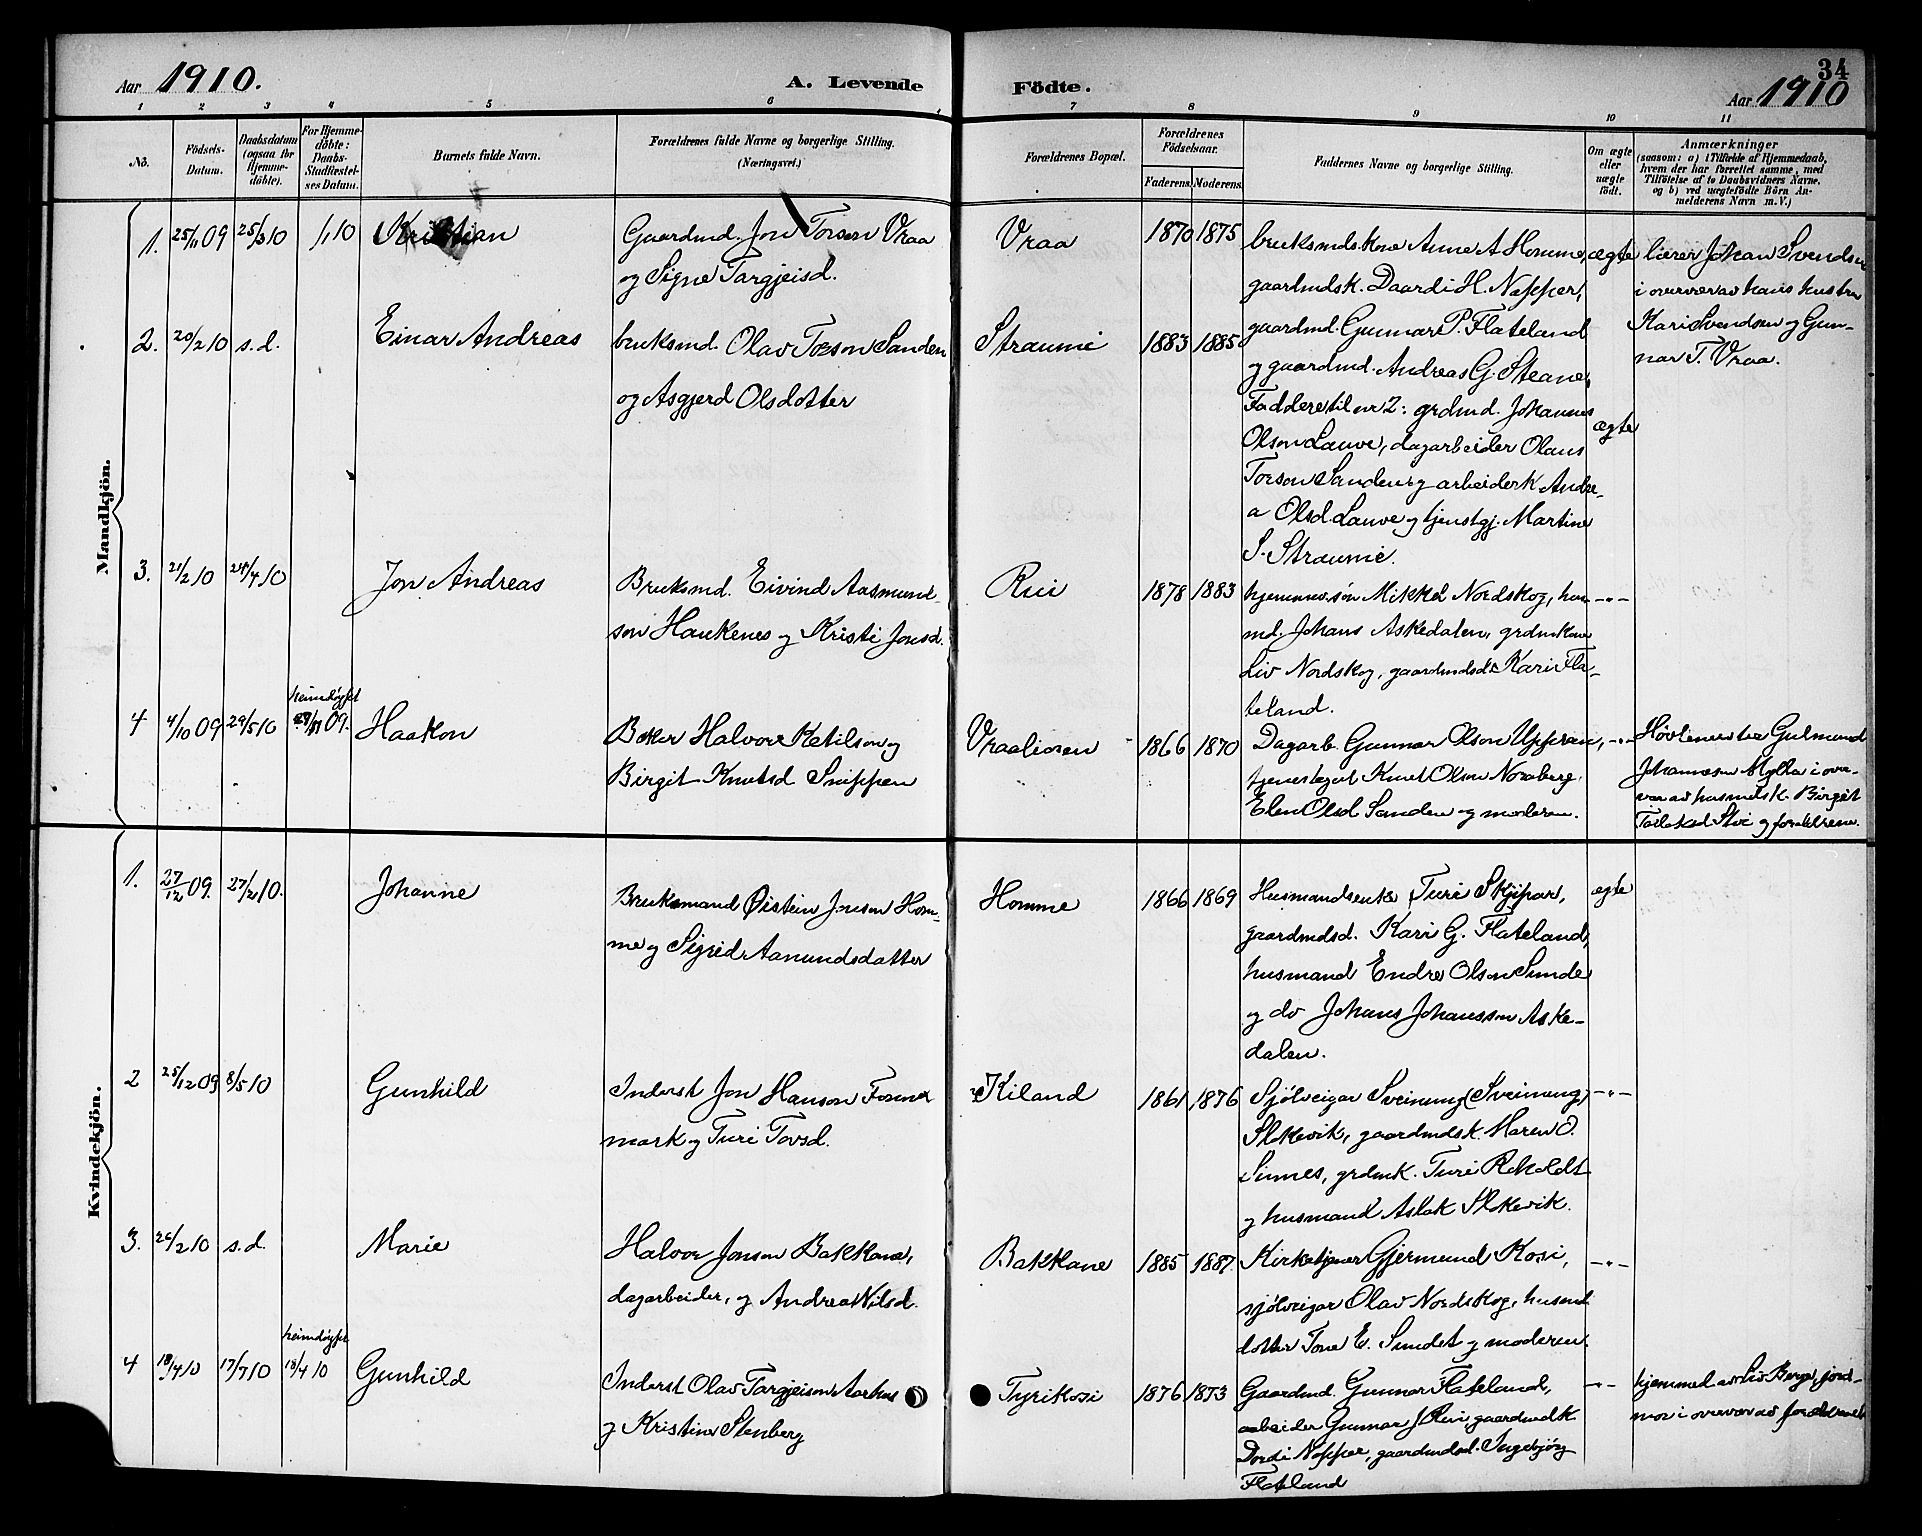 Aar 1910. A. Levende Födte. Aar 1910
34
1 2 3 4 5 6 7 8 9 10 11
No.
Födsels-
Datum.
Daabsdatum
(ogsaa for
Hjemme-
döbte).
For Hjemme-
döbte:
Daabs-
Stadfæstel-
ses Datum.
Barnets fulde Navn.
Forældrenes fulde Navne og borgerlige Stilling.
(Næringsvei.)
Forældrenes Bopæl.
Forældrenes
Födselsaar.
Faderens. Moderens.
Faddernes Navne og borgerlige Stilling.
Om ægte
eller
uægte
født.
Anmærkninger
(saasom: a) i Tilfælde af Hjemmedaab,
hvem der har forrettet samme, med
Tilföielse af to Daabsvidners Navne,
og b) ved uægtefödte Börn An-
melderens Navn m. V.)
Mandkjön.
1. 25/11 09 25/3 10 1/1 10 Kristian
Gaardmd. Jon Torson Vraa
og Signe Targjeisd.
Vraa 1870 1875
bruksmdskone Anne A Homme,
gaardmdsk. Daardi H. Napper,
gaardmd. Gunnar P. Flateland
og gaardmd. Andreas G. Steane,
ægte
lærer Johan Svendsen
i overvær av hans hustru
Kari Svendsen og Gun-
nar T. Vraa.
2. 20/2 10 s.d. Einar Andreas
bruksmd. Olav Torson Sanden
og Asgjerd Olsdotter
Straume 1883 1885
Faddere til nr 2: grdmd. Johannes
Olson Lauve, dagarbeider Olaus
Torson Sanden og arbeiderk Andre-
a Olsd. Lauve og tjenstgj. Martine
S. Straume.
ægte
3. 21/2 10 24/4 10 Jon Andreas
Bruksmd. Eivind Aasmund-
son Haukenes og Kristi Jonsd.
Rui 1878 1883
hjemmev. søn Mikkel Nordskog, hus-
md. Johans Askedalen, grdmkone
Liv Nordskog, gaardmdsd. Kari Fla-
teland.
-"-
4 4/10 09 29/5 10 heimdøypt 09. Haakon
Baker Halvor Ketilson og
Birgit Knutsd Snippen
Vraalioren 1866 1870
Dagarb. Gunnar Olson Uppren,
tjenestegut Knut Olson Noraberg,
Elen Olsd Sanden og moderen.
-"-
Gulmund
Johannesen Mylla i over-
vær av husmdsk. Birgit
Støe og foreldrene.
Kvindekjön.
1. 27/12 09. 27/2 10. Johanne
Bruksmand Øistein Jonson Hom-
me og Sigrid Aanundsdatter
Homme 1866 1869
Husmandsenke Turi Skjipar,
gaardmdsd. Kari G. Flateland,
husmand Endre Olson Sunde
og do Johans Johansson Aske-
dalen.
ægte
2 25/12 09 8/5 10 Gunhild
Inderst Jon Hanson Forme-
mark og Turi Tovsd.
Kiland 1861 1876
Sjølveigar Sveinung (Sveinung)
Slokevik, gaardmdsk. Maren O.
Sinnes, grdmk. Turi Roholdt
og husmand Aslak Slokevik.
-"-
3. 26/2 10 s.d. Marie
Halvor Jonson Bakkane,
dagarbeider, og Andrea Nilsd.
Bakkane 1885 1887.
Kirketjener Gjermund Kosi,
sjølveigar Olav Nordskog, husmd
dotter Tone E. Sundet og moderen.
-"-
4 18/4 10 17/7 10 heimdøypt 18/4 10 Gunhild
Inderst Olav Targjeison Aarhus
og Kristine Stenberg
Tyrikosi 1876 1873
Gaardmd. Gunnar Flateland,
arbeider Gunnar J. Rui, gaardmdk.
Dordi Napper, gaardmdsd. Ingebjørg
Flateland
-"-
hjemmed. av Liv Berge, jord-
mor i overvær av foreldrene